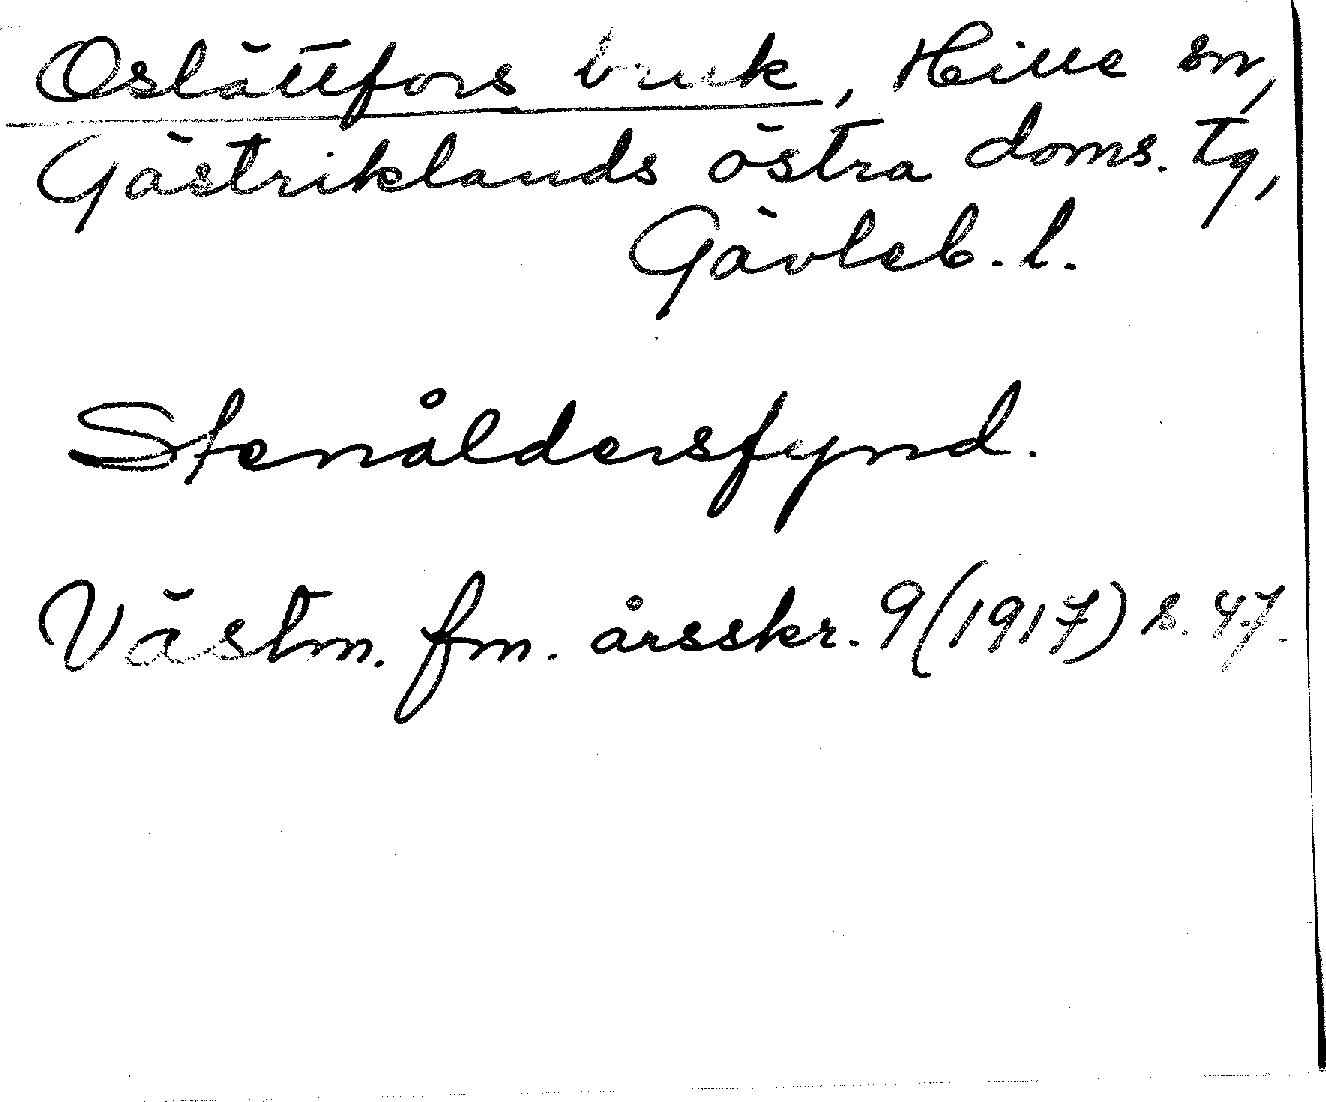 Oslättfors bruk, Hille sn,
Gästriklands östra doms. tg,
Gävleb. l.
Stenåldersfynd.
Västm. fm. årsskr. 9 (1917) s. 47.